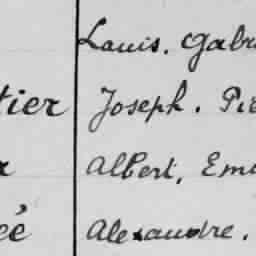 Louis. Gabr
tier Joseph. Pie
r Albert, Emi
eé Alexandre.